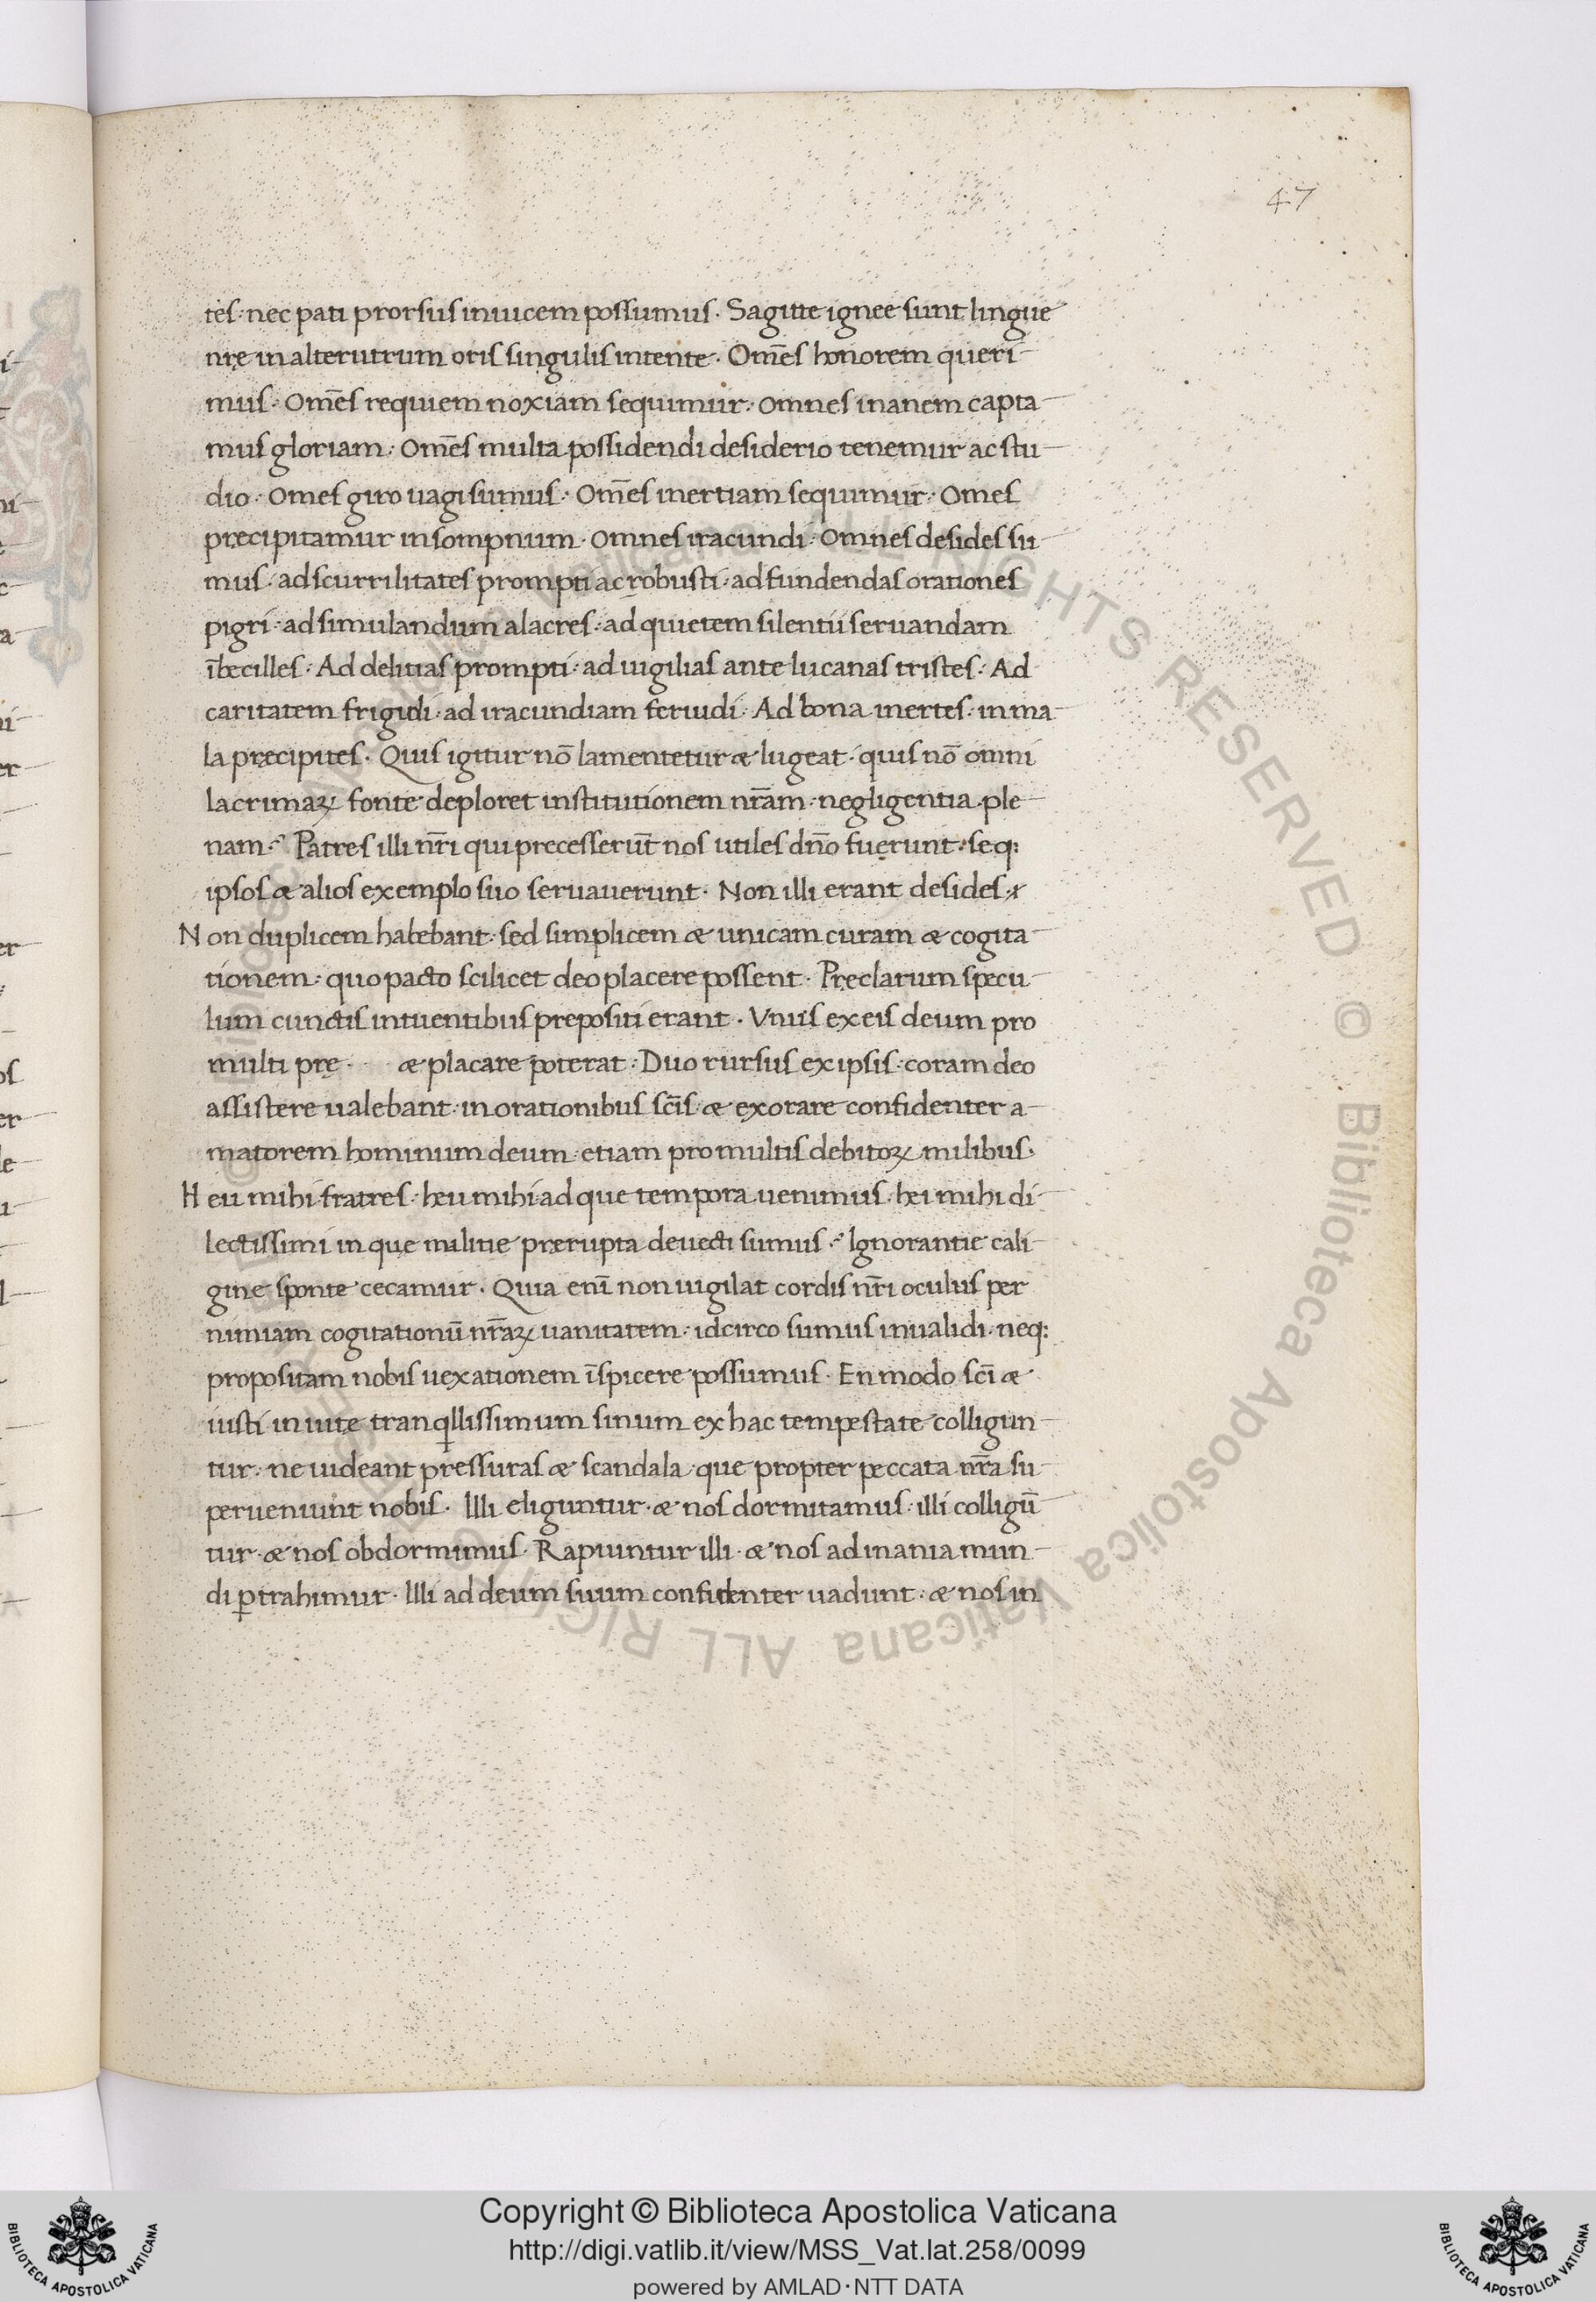 47
tes· nec pati prorsus inuicem possumus. Sagitte ignee sunt lingue
nrę in alterutrum oris singulis intente. Om̅es honorem queri-
mus· Om̅es requiem noxiam sequimur· omnes inanem capta-
mus gloriam· Om̅es multa possidendi desiderio tenemur ac stu-
dio· Omes giro uagi sumus· Om̅es inertiam sequimur· Omes
pręcipitamur in sompnum· Omnes iracundi· Omnes desides su-
mus· ad scurrilitates prompti ac robusti· ad fundendas orationes
pigri· ad simulandum alacres· ad quietem silentii seruandam
i̅becilles· Ad delitias prompti· ad uigilias ante lucanas tristes· Ad
caritatem frigidi· ad iracundiam feruidi· Ad bona inertes· in ma-
la pręcipites· Quis igitur no̅ lamentetur & lugeat· quis no̅ omni
lacrimaꝝ fonte deploret institutionem nr̅am· negligentia ple-
nam· Patres illi nr̅i qui precesseru̅t nos utiles dn̅o fuerunt· seq:
ipsos & alios exemplo suo seruauerunt· Non illi erant desides·
Non duplicem habebant· sed simplicem & unicam curam & cogita-
tionem· quo pacto scilicet deo placere possent· Pręclarum specu-
lum cunctis intuentibus prepositi erant· Vnus ex eis deum pro
multi prę & placare poterat· Duo rursus ex ipsis· coram deo
assistere ualebant· in orationibus sc̅is· & exorare confidenter a-
matorem hominum deum· etiam pro multis debitoꝝ milibus·
Heu mihi fratres· heu mihi ad que tempora uenimus· hei mihi di-
lectissimi in quę militie prerupta deuecti sumus· Ignorantie cali-
gine sponte cecamur· Quia eni̅ non uigilat cordis nr̅i oculus per
nimiam cogitationu̅ nr̅aꝝ uanitatem· idcirco sumus inualidi· neq:
propositam nobis uexationem i̅spicere possumus· En modo sc̅i &
iusti in uitę tranqllissimum sinum ex hac tempestate colligun-
tur· ne uideant pressuras & scandala· que propter peccata nr̅a su-
perueniunt nobis· Illi eliguntur· & nos dormitamus· illi colligu̅-
tur· & nos obdormimus· Rapiuntur illi· & nos ad inania mun-
di ꝑtrahimur· Illi ad deum suum confidenter uadunt· & nos in
Copyright © Biblioteca Apostolica Vaticana
http://digi.vatlib.it/view/MSS_Vat.lat.258/0099
powered by AMLAD·NTT DATA